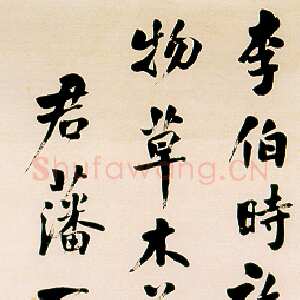 李伯時
物草木
君藩
ShufaWang.CN